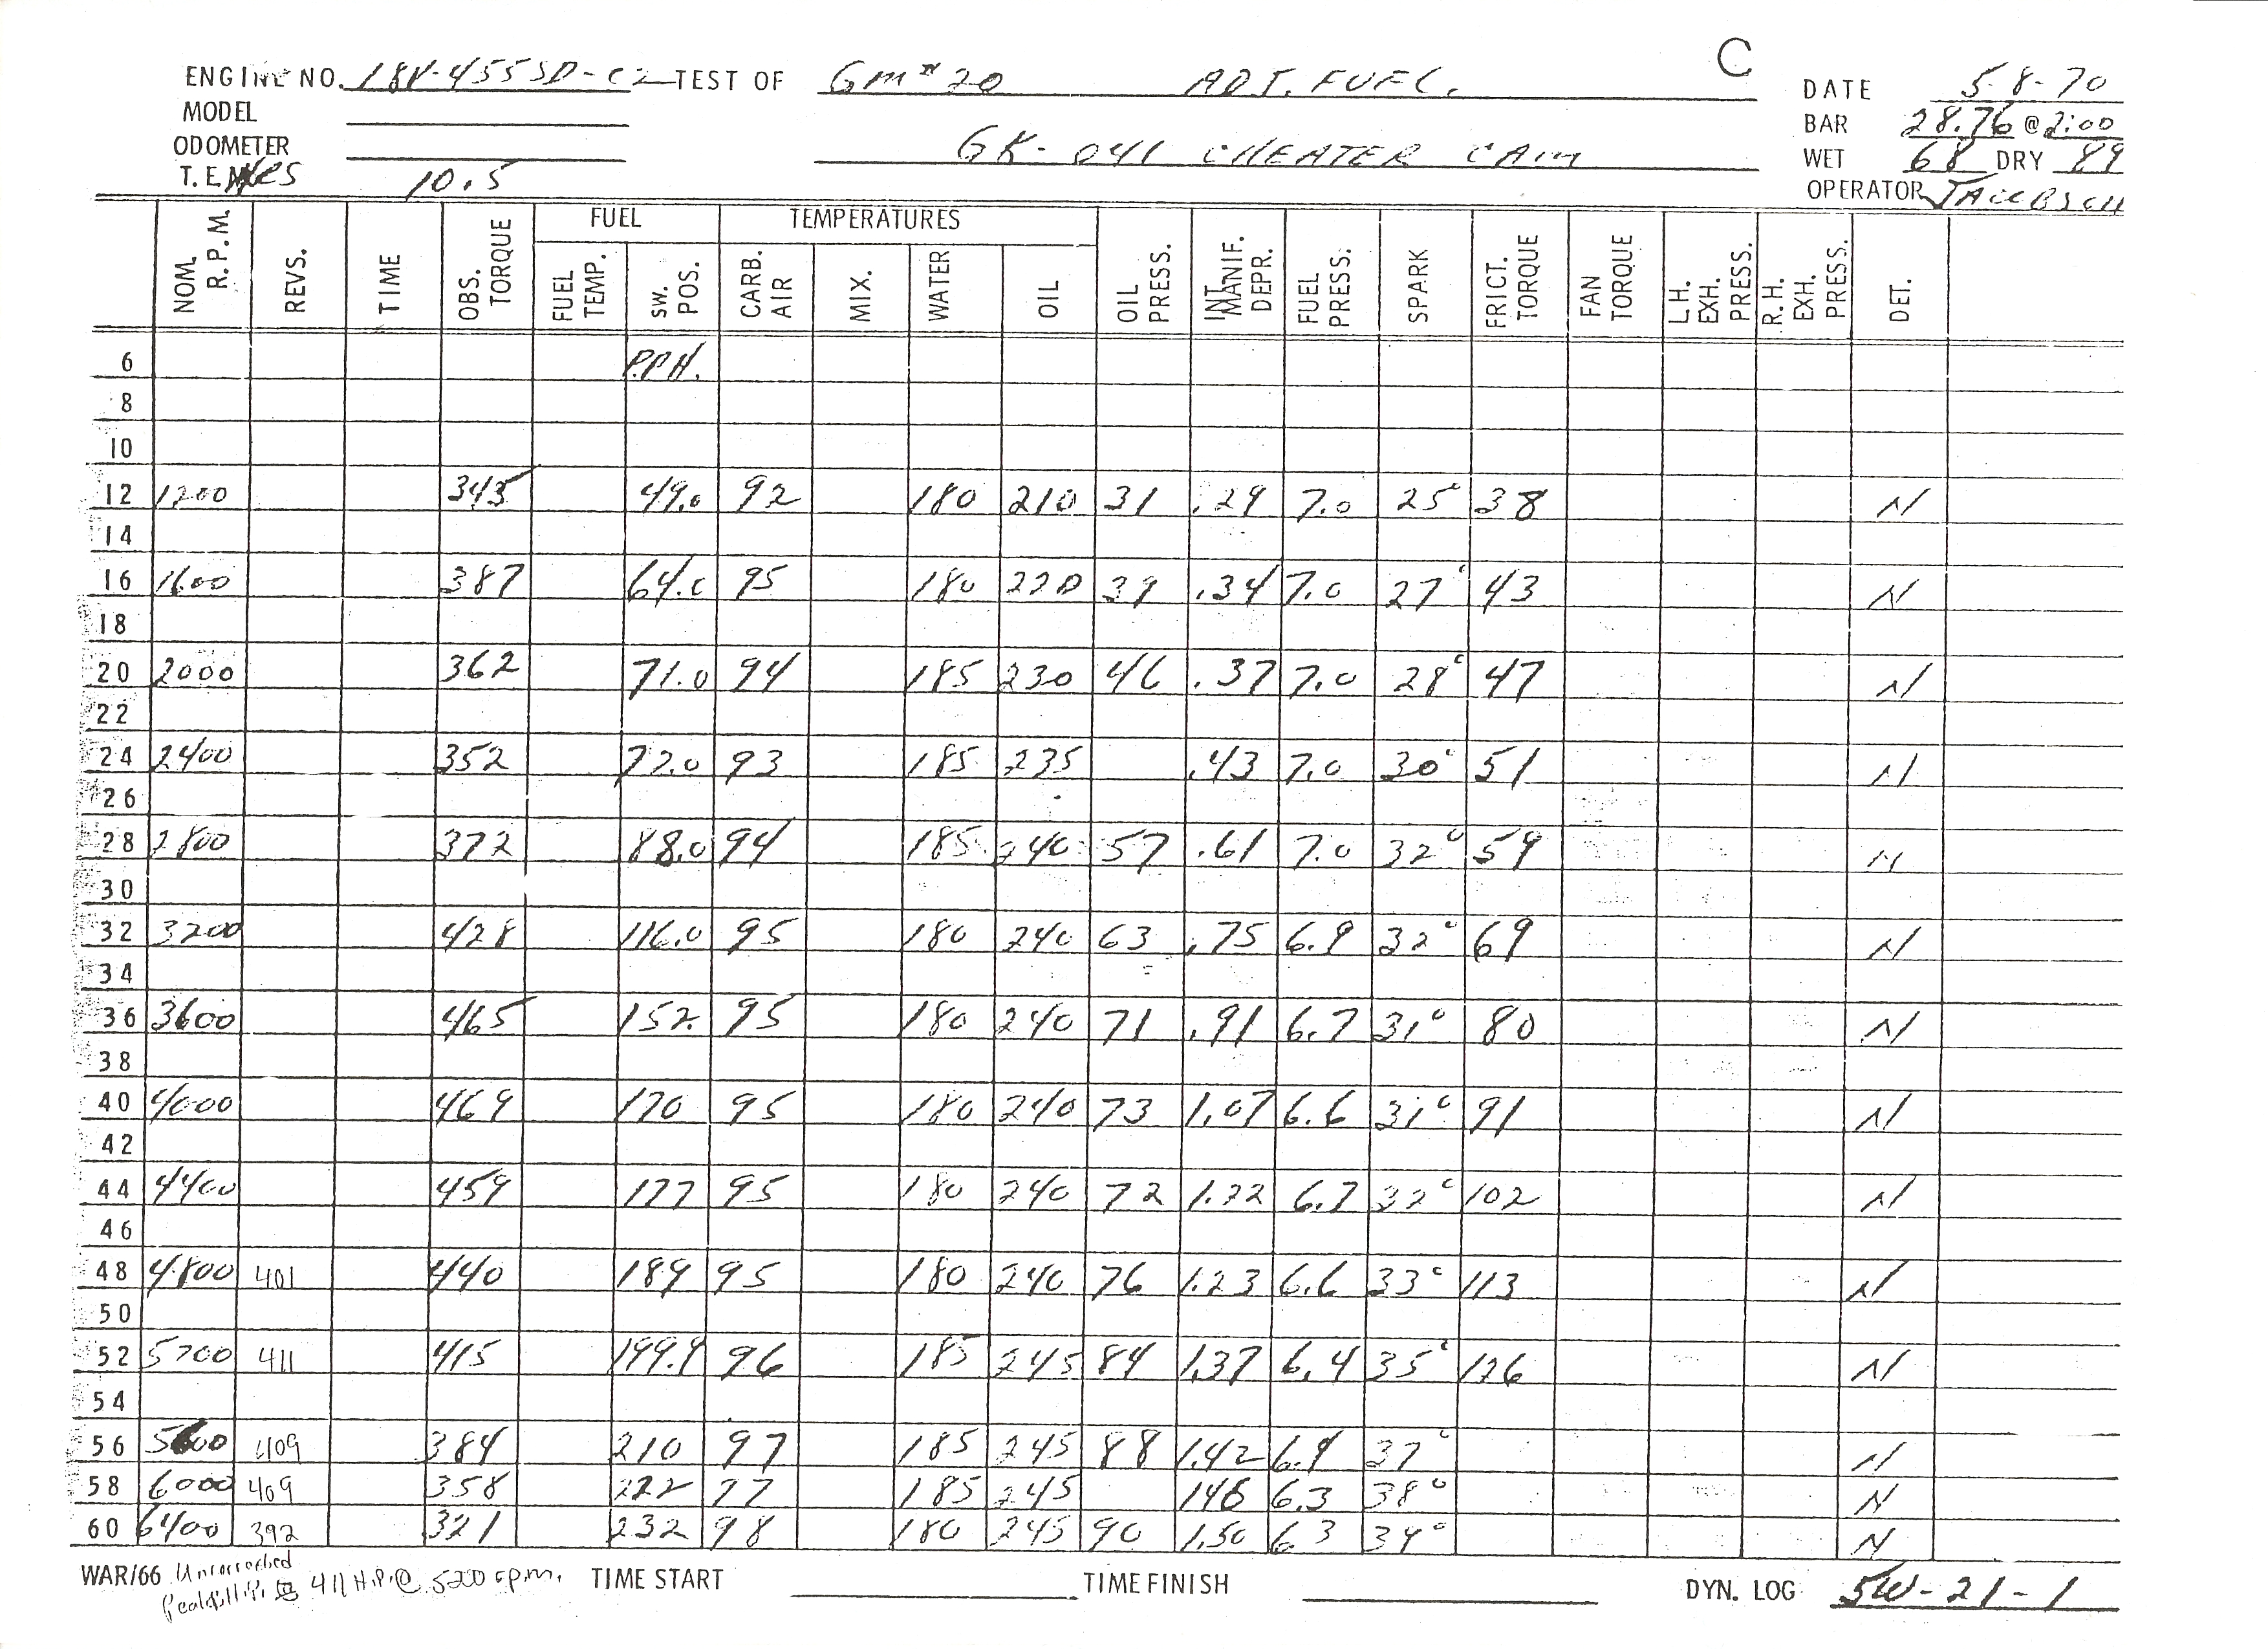 C
ENGINE NO. 18V-455SD-C2 TEST OF GM#20 ADJ. FUEL. DATE 5-8-70
MODEL BAR 28.76 @ 2:00
ODOMETER GK-041 CHEATER CAM WET 68 DRY 89
10.5 OPERATOR
FUEL TEMPERATURES
NOM. R.P.M. REVS. TIME OBS. TORQUE FUEL TEMP. SW. POS. CARB. AIR MIX. WATER OIL OIL PRESS. INT. MANIF. DEPR. FUEL PRESS. SPARK FRICT. TORQUE FAN TORQUE L.H. EXH. PRESS. R.H. EXH. PRESS. DET.
6 P.P.H.
8
10
12 1200 345 49.0 92 180 210 31 .29 7.0 25° 38 N
14
16 1600 387 64.0 95 180 220 39 .34 7.0 27° 43 N
18
20 2000 362 71.0 94 185 230 46 .37 7.0 28° 47 N
22
24 2400 352 72.0 93 185 235 .43 7.0 30° 51 N
26
28 2800 372 88.0 94 185 240 57 .61 7.0 32° 59 N
30
32 3200 428 116.0 95 180 240 63 .75 6.9 32° 69 N
34
36 3600 465 152. 95 180 240 71 .91 6.7 31° 80 N
38
40 4000 469 170 95 180 240 73 1.07 6.6 31° 91 N
42
44 4400 459 177 95 180 240 72 1.22 6.7 32° 102 N
46
48 4800 401 440 189 95 180 240 76 1.23 6.6 33° 113 N
50
52 5200 411 415 199.9 96 185 245 84 1.37 6.4 35° 126 N
54
56 5600 409 384 210 97 185 245 88 1.42 6.4 37° N
58 6000 409 358 222 97 185 245 146 6.3 38° N
60 6400 392 321 232 98 180 245 90 1.50 6.3 34° N
WAR/66 Uncorrected TIME START TIME FINISH DYN. LOG 5W-21-1
411 H.P. @ 5200 r.p.m.